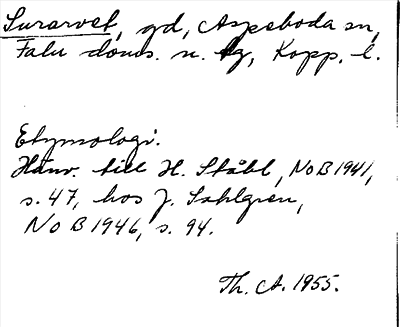 Surarvet, gd, Aspeboda sn,
Falu doms. n. tg, Kopp. l.
Etymologi.
Hänv. till H. Ståhl, NoB 1941,
s. 47, hos J. Sahlgren,
NoB 1946, s. 94.
Th. A. 1955.